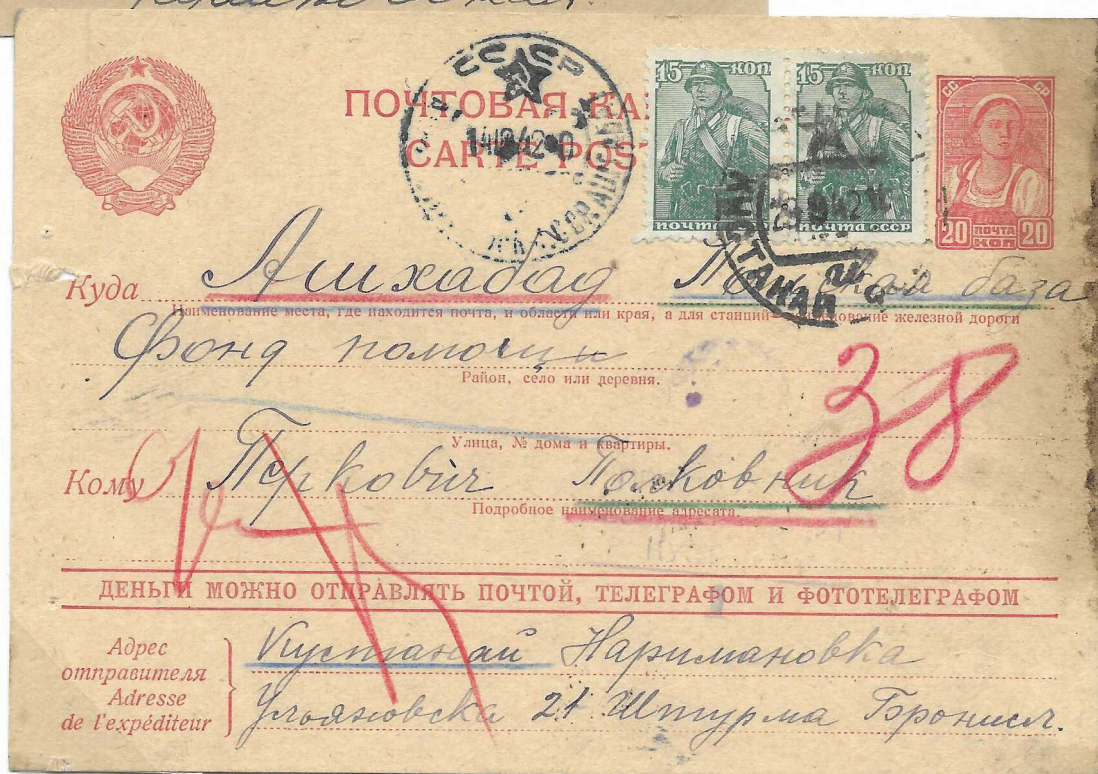 СССР
ПОЧТОВАЯ
CARTE
15 КОП 15 КОП
ПОЧТА СССР
СС СР
20 ПОЧТА КОП 20
Куда Ашхабад база
Наименование места, где находится почта, и области или края, а для станций— наименование железной дороги
Фонд помощи
Район, село или деревня.
38
Улица, № дома и квартиры.
Кому Полковник
Подробное наименование адресата
ДЕНЬГИ МОЖНО ОТПРАВЛЯТЬ ПОЧТОЙ, ТЕЛЕГРАФОМ И ФОТОТЕЛЕГРАФОМ
Адрес отправителя
Adresse de l'expéditeur
Кустанай Наримановка
Ульяновска 21 Штурма Бронисл.